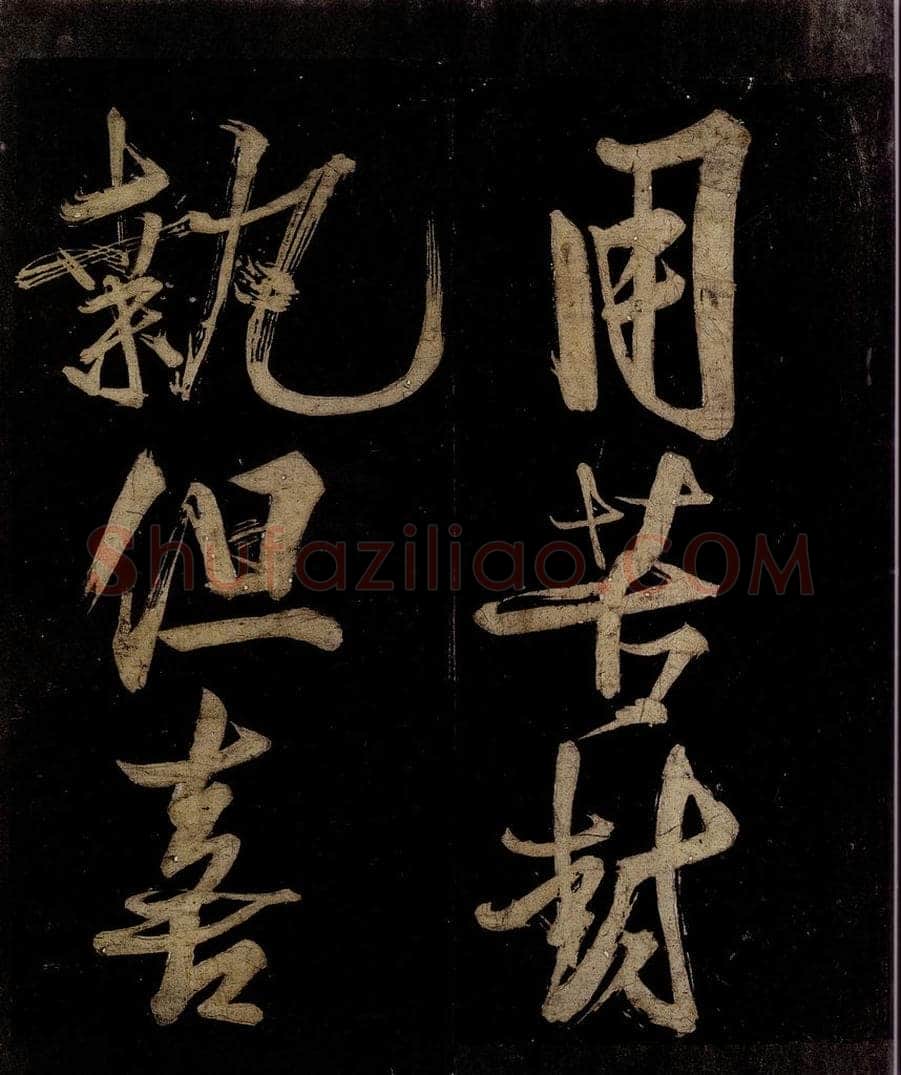 用苦封
執但喜
Shufaziliao.COM